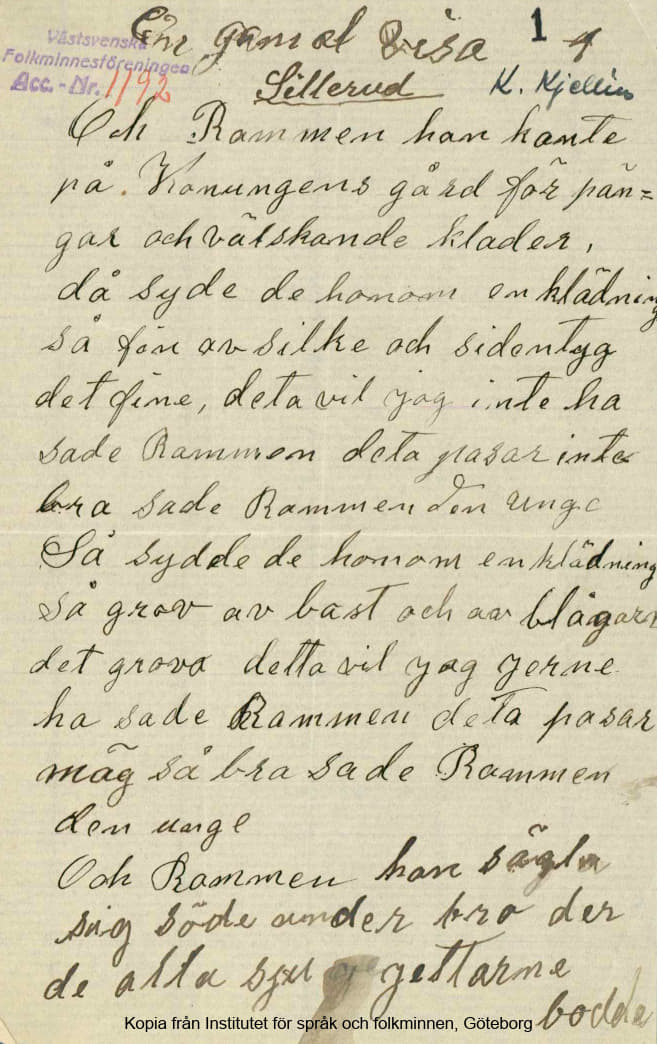 En gamal visa 1 4
Västsvenska
Folkminnesföreningen
Acc.-Nr. 1192
Lillerud K. Kjellin
Och Rammen han kamte
på. Konungens gård för pän=
gar och vätskande klader,
då syde de honom en klädning
så fin av silke och sidentyg
det fine, deta vil jag inte ha
sade Rammen deta pasar inte
bra sade Rammen den unge
Så sydde de honom en klädning
så grov av bast och av blågarn
det grova detta vil jag jerne
ha sade Rammen deta pasar
mäg så bra sade Rammen
den unge
Och Rammen han sägla
sig söde under bro der
de alla sju jettarne
bodde
Kopia från Institutet för språk och folkminnen, Göteborg